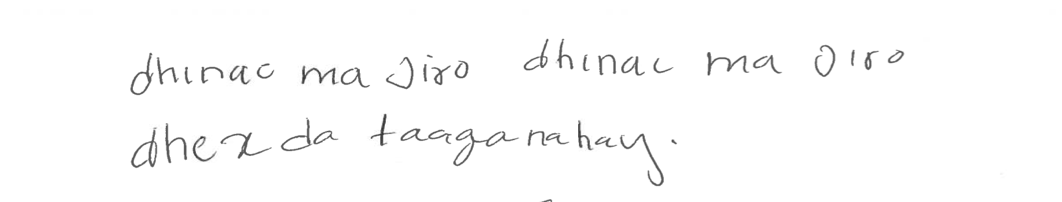 dhinac ma jiro dhinac ma jiro
dhexda taaganahay.